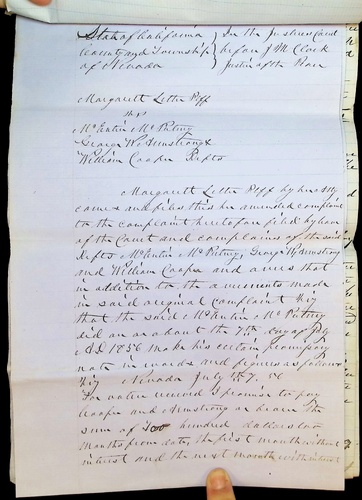 State of California } In the Justices Court
County and Township } before J M Clark
of Nevada } Justice of the Peace
Margarett Letter Plff
vs
McEntin McPutney
George W Armstrong &
William Cooper Defts
Margarett Letter Plff by her Atty
comes and files this her amended complaint
to the complaint heretofore filed by leave
of the Court and complains of the said
Defts McEntin McPutney, George W Armstrong
and William Cooper and avers that
in addition to the averments made
in said original complaint
that the said McEntin McPutney
did on or about the 7th day of July
A.D. 1856 make his certain promissory
note in words and figures as follows
Nevada July 7. 56
For value received I promise to pay
Cooper and Armstrong or bearer the
sum of hundred dollars two
months from date, the first month without
interest and the next month with interest